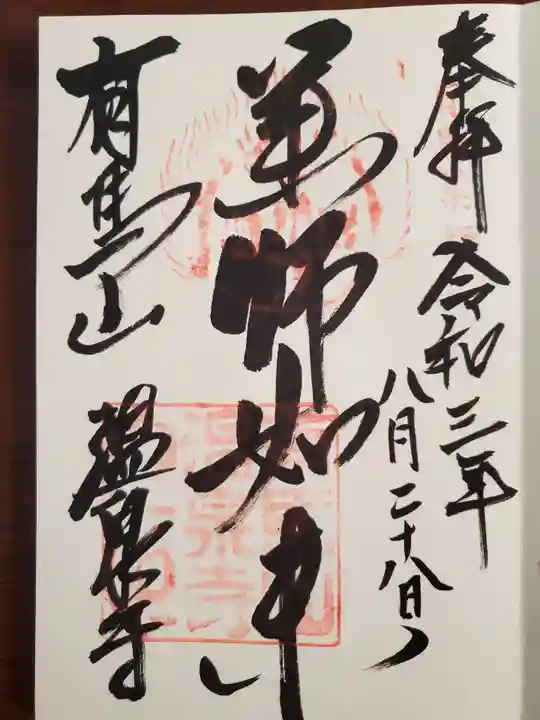 奉拝 令和三年
八月二十八日
薬師如来
有馬山 温泉寺